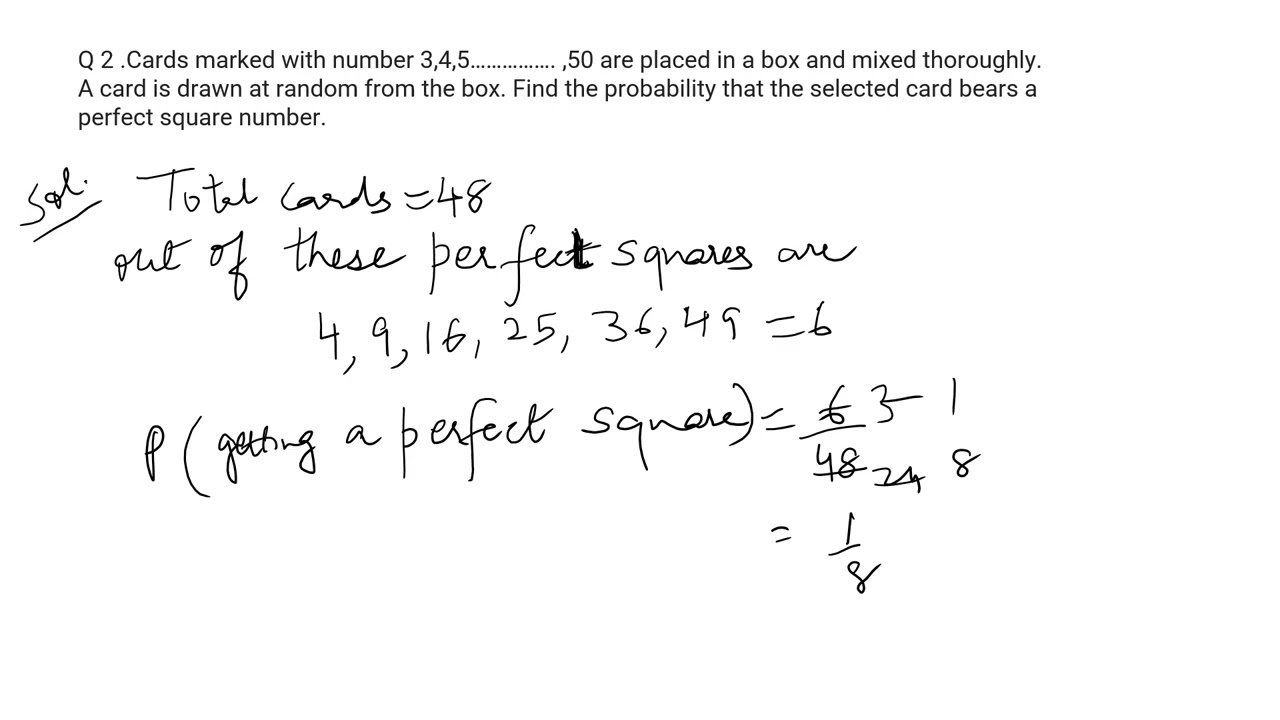 Q 2 .Cards marked with number 3,4,5……………. ,50 are placed in a box and mixed thoroughly.
A card is drawn at random from the box. Find the probability that the selected card bears a
perfect square number.
Sol. Total cards = 48
out of these perfect squares are
4, 9, 16, 25, 36, 49 = 6
P (getting a perfect square) = 6/48 3/24 1/8
= 1/8